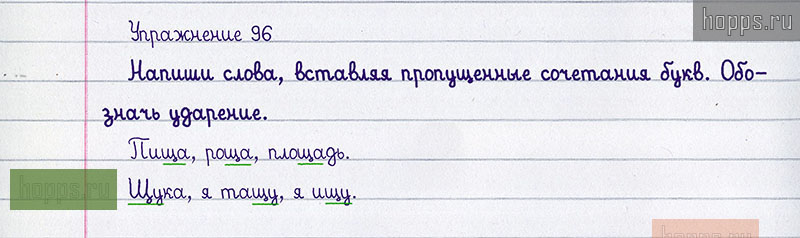 hopps.ru
Упражнение 96
Напиши слова, вставляя пропущенные сочетания букв. Обо-
значь ударение.
Пища, роща, площадь.
hopps.ru
Щука, я тащу, я ищу.
hopps.ru